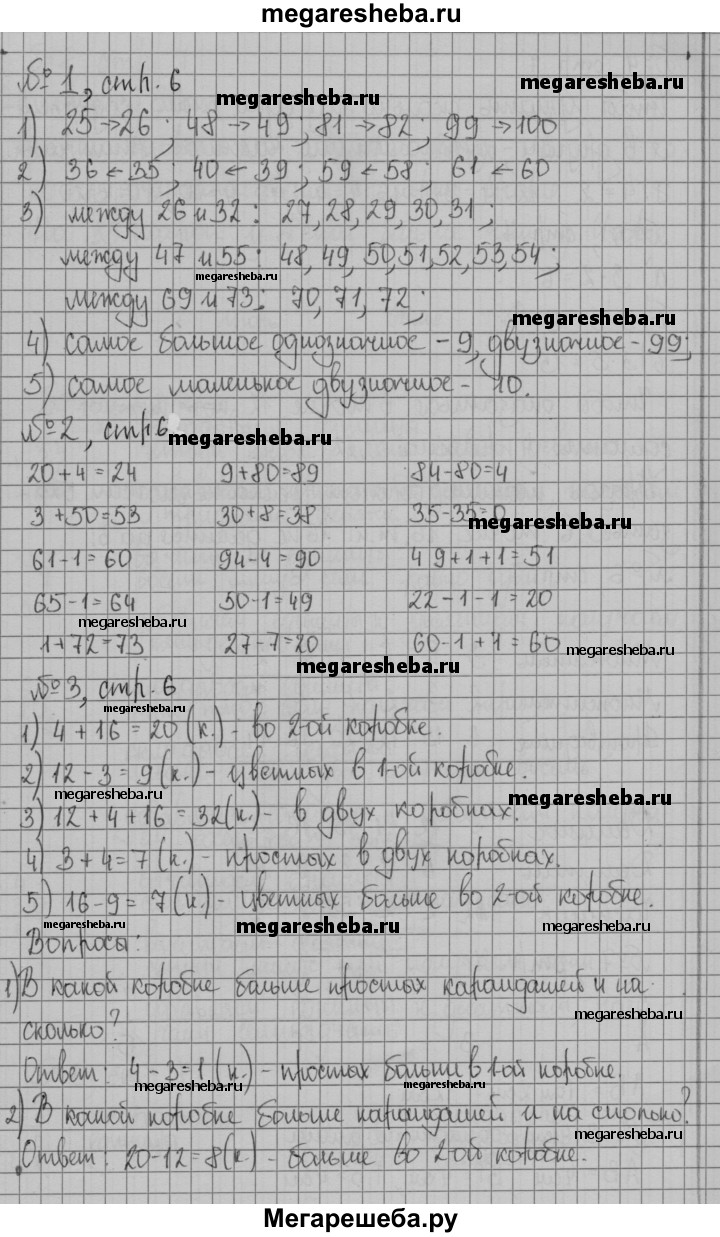 megaresheba.ru
№ 1, стр. 6
megaresheba.ru
megaresheba.ru
1) 25→26; 48→49; 81→82; 99→100
2) 36←35; 40←39; 59←58; 61←60
3) между 26 и 32: 27, 28, 29, 30, 31;
между 47 и 55: 48, 49, 50, 51, 52, 53, 54;
megaresheba.ru
между 69 и 73: 70, 71, 72;
megaresheba.ru
4) самое большое однозначное - 9, двузначное - 99;
5) самое маленькое двузначное - 10.
№ 2, стр 6
megaresheba.ru
20+4=24 9+80=89 84-80=4
3+50=53 30+8=38 35-35=0
megaresheba.ru
61-1=60 94-4=90 49+1+1=51
65-1=64 50-1=49 22-1-1=20
megaresheba.ru
1+72=73 27-7=20 60-1+1=60
megaresheba.ru
megaresheba.ru
№ 3, стр. 6
megaresheba.ru
1) 4+16=20 (к.) - во 2-ой коробке.
2) 12-3=9 (к.) - цветных в 1-ой коробке.
megaresheba.ru
megaresheba.ru
3) 12+4+16=32 (к.) - в двух коробках.
4) 3+4=7 (к.) - простых в двух коробках.
5) 16-9=7 (к.) - цветных больше во 2-ой коробке.
megaresheba.ru
megaresheba.ru
megaresheba.ru
Вопросы:
1) В какой коробке больше простых карандашей и на
megaresheba.ru
сколько?
Ответ: 4-3=1 (к.) - простых больше в 1-ой коробке.
megaresheba.ru
megaresheba.ru
2) В какой коробке больше карандашей и на сколько?
megaresheba.ru
Ответ: 20-12=8 (к.) - больше во 2-ой коробке.
Мегарешеба.ру